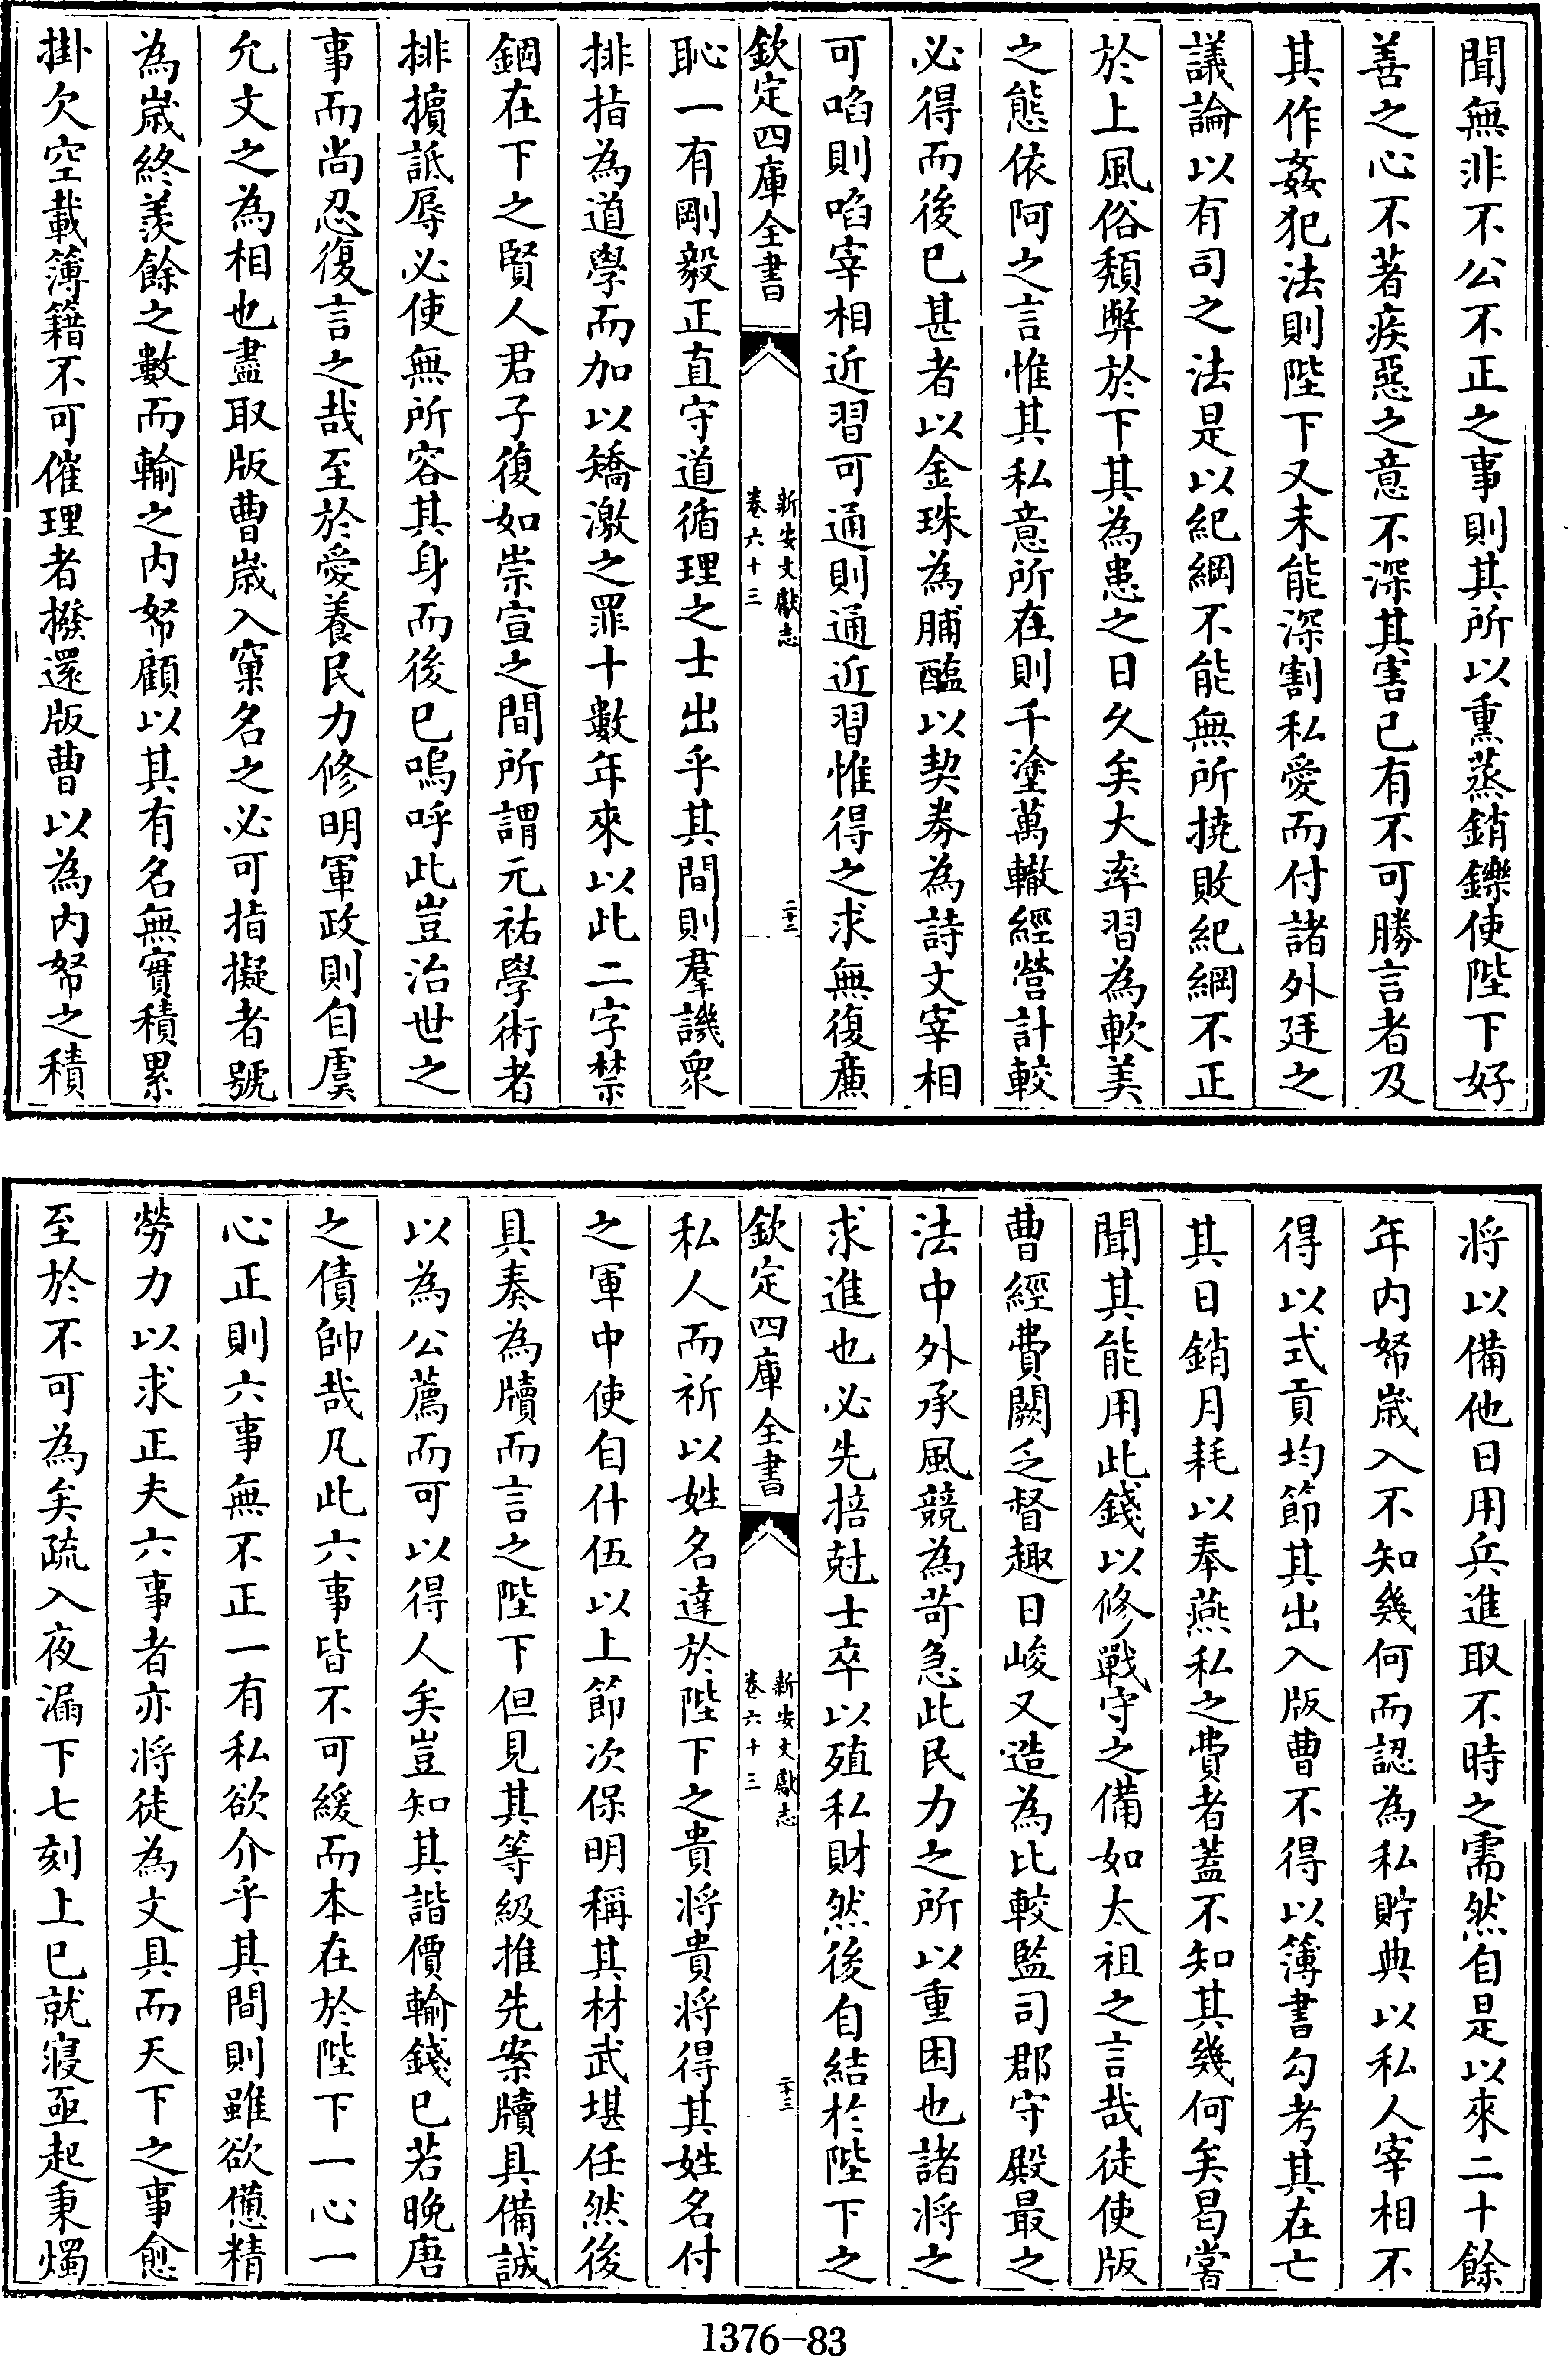 聞無非不公不正之事則其所以熏蒸銷鑠使陛下好
善之心不著疾惡之意不深其害已有不可勝言者及
其作姦犯法則陛下又未能深割私愛而付諸外廷之
議論以有司之法是以紀綱不能無所撓敗紀綱不正
於上風俗頽弊於下其為患之日久矣大率習為軟美
之態依阿之言惟其私意所在則千塗萬轍經營計較
必得而後已甚者以金珠為脯醢以契劵為詩文宰相
可啗則啗宰相近習可通則通近習惟得之求無復亷
欽定四庫全書
新安文獻志
卷六十三
二十三
恥一有剛毅正直守道循理之士出乎其間則羣譏衆
排指為道學而加以矯激之罪十數年來以此二字禁
錮在下之賢人君子復如崇宣之間所謂元祐學術者
排擯詆辱必使無所容其身而後已嗚呼此豈治世之
事而尚忍復言之哉至於愛養民力修明軍政則自虞
允文之為相也盡取版曹歲入窠名之必可指擬者號
為歲終羨餘之數而輸之内帑顧以其有名無實積累
掛欠空載簿籍不可催理者撥還版曹以為内帑之積
將以備他日用兵進取不時之需然自是以來二十餘
年内帑歲入不知幾何而認為私貯典以私人宰相不
得以式貢均節其出入版曹不得以簿書勾考其在亡
其日銷月耗以奉燕私之費者蓋不知其幾何矣曷嘗
聞其能用此錢以修戰守之備如太祖之言哉徒使版
曹經費闕乏督趣日峻又造為比較監司郡守殿最之
法中外承風競為苛急此民力之所以重困也諸將之
求進也必先掊尅士卒以殖私財然後自結於陛下之
欽定四庫全書
新安文獻志
卷六十三
二十三
私人而祈以姓名達於陛下之貴將貴將得其姓名付
之軍中使自什伍以上節次保明稱其材武堪任然後
具奏為牘而言之陛下但見其等級推先案牘具備誠
以為公薦而可以得人矣豈知其諧價輸錢已若晚唐
之債帥哉凡此六事皆不可緩而本在於陛下一心一
心正則六事無不正一有私欲介乎其間則雖欲憊精
勞力以求正夫六事者亦將徒為文具而天下之事愈
至於不可為矣疏入夜漏下七刻上已就寢亟起秉燭
1376-83